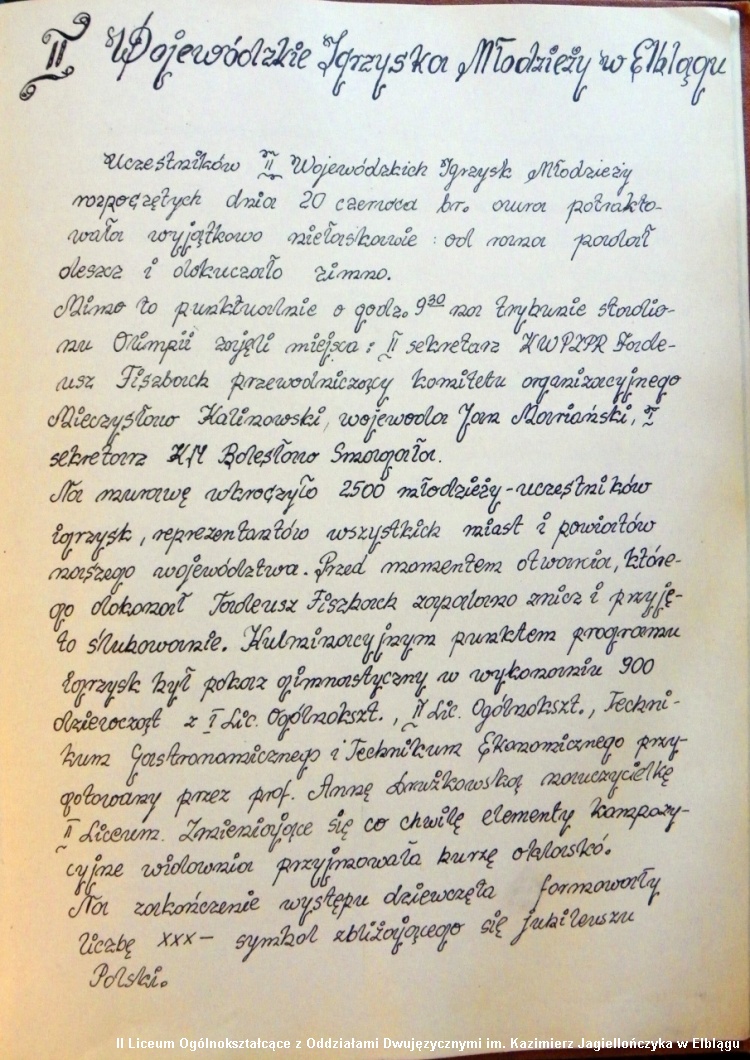 II Wojewódzkie Igrzyska Młodzieży w Elblągu
Uczestników II Wojewódzkich Igrzysk Młodzieży
rozpoczętych dnia 20 czerwca br. aura potrakto-
wała wyjątkowo niełaskawie : od rana padał
deszcz i dokuczało zimno.
Mimo to punktualnie o godz. 9³⁰ na trybunie stadio-
nu Olimpii zajęli miejsca : II sekretarz KWPZPR Tade-
usz Fiszbach przewodniczący komitetu organizacyjnego
Mieczysław Kalinowski, wojewoda Jan Mariański, I
sekretarz KM Bolesław Smagała.
Na murawę wkroczyło 2500 młodzieży-uczestników
igrzysk, reprezentantów wszystkich miast i powiatów
naszego województwa. Przed momentem otwarcia, które-
go dokonał Tadeusz Fiszbach zapalono znicz i przyję-
to ślubowanie. Kulminacyjnym punktem programu
igrzysk był pokaz gimnastyczny w wykonaniu 900
dziewcząt z I Lic. Ogólnokszt., II Lic. Ogólnokszt., Techni-
kum Gastronomicznego i Technikum Ekonomicznego przy-
gotowany przez prof. Annę Drużkowską nauczycielkę
II Liceum. Zmieniające się co chwilę elementy kompozy-
cyjne widownia przyjmowała burzą oklasków.
Na zakończenie występu dziewczęta formowały
liczbę XXX – symbol zbliżającego się jubileuszu
Polski.
II Liceum Ogólnokształcące z Oddziałami Dwujęzycznymi im. Kazimierz Jagiellończyka w Elblągu